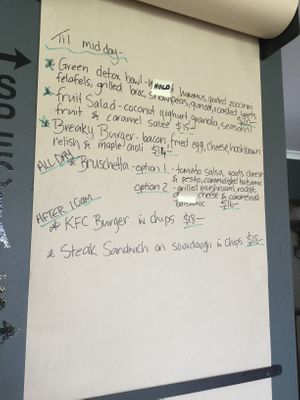 Til midday-
* Green detox bowl - HOLD & hummus, grilled zuccini
felafels, grilled broc, snowpeas, quinoa, roasted beets
* Fruit Salad - coconut yoghurt, granola, seasonal
fruit & caramel sauce $15-
* Breaky Burger - bacon, fried egg, cheese, hashbrown
relish & maple aioli $14
ALL DAY * Bruschetta - option 1 - tomato salsa, goats cheese
& pesto, caramelised balsamic
option 2 - grilled mushrooms, rocket,
cheese & caramelised
balsamic $16-
AFTER 10AM
* KFC Burger n chips $18-
* Steak Sandwich on sourdough n chips $18-